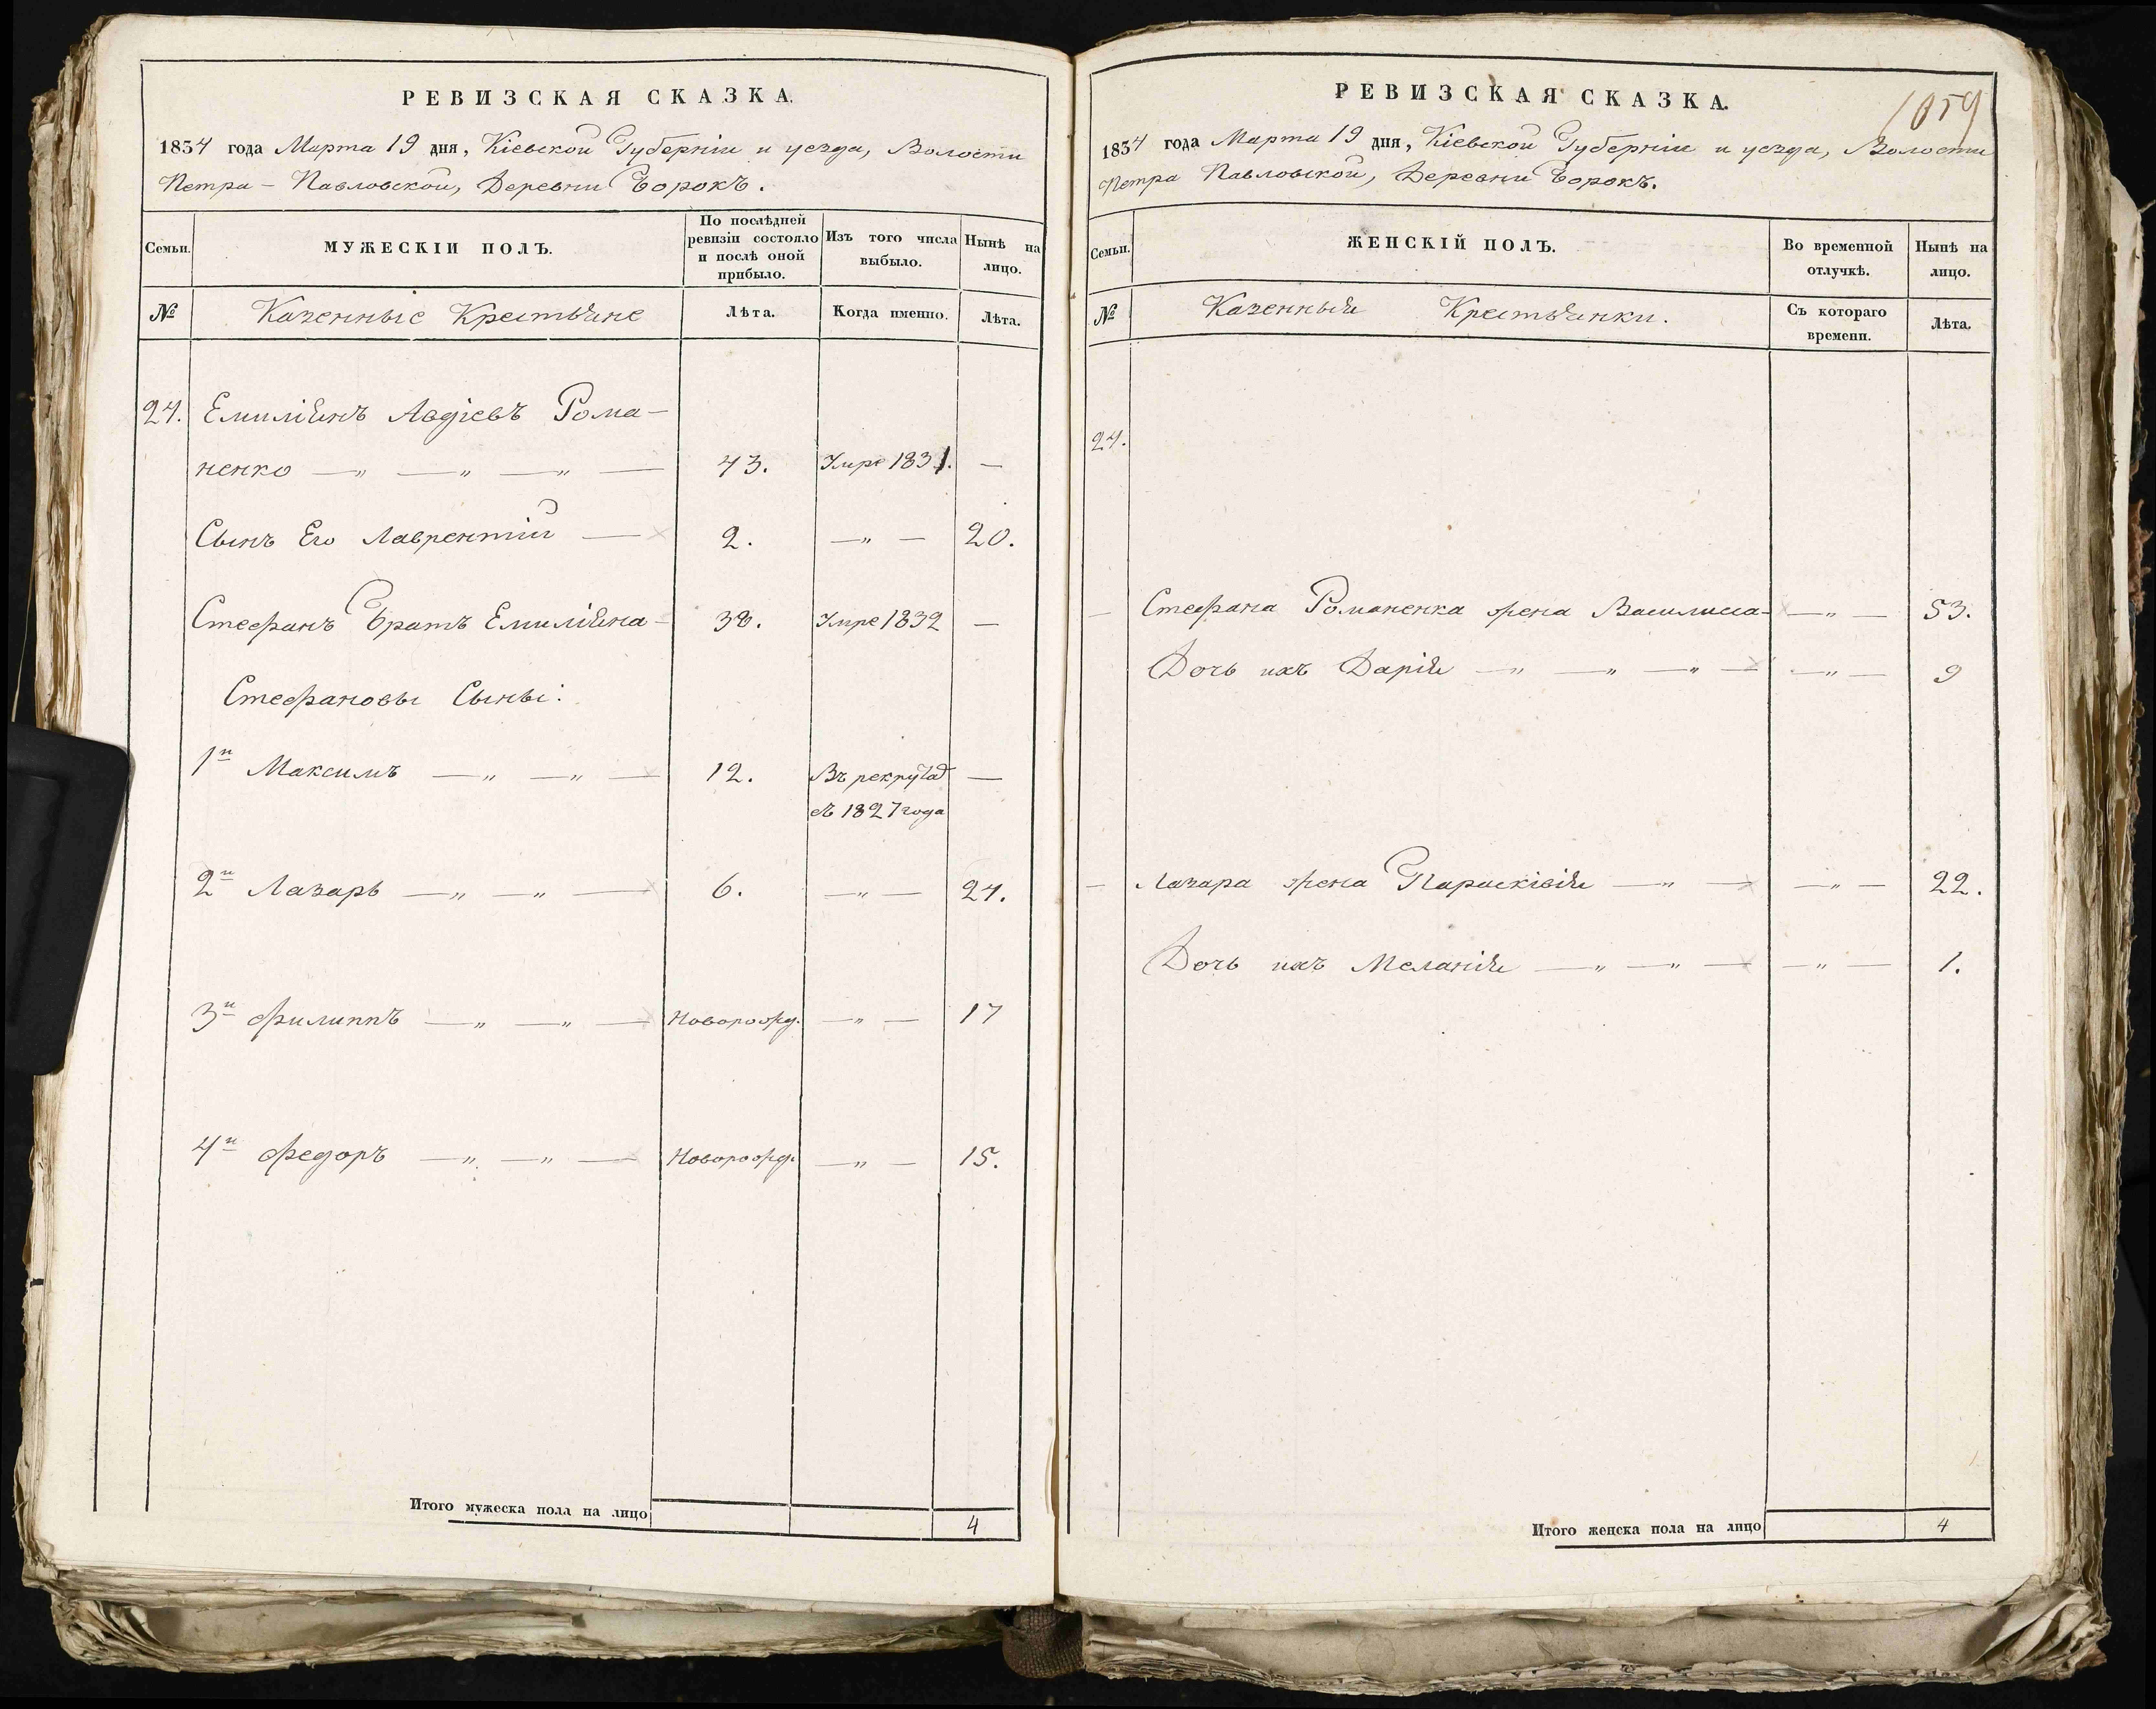 РЕВИЗСКАЯ СКАЗКА.
1834 года Марта 19 дня, Кіевской Губерніи и уезда, Волости
Петра-Павловской, Деревни Борокъ.
Семьи.
МУЖЕСКІЙ ПОЛЪ.
По послѣдней
ревизіи состояло
и послѣ оной
прибыло.
Изъ того числа
выбыло.
Нынѣ на
лицо.
№
Казенные Крестьяне
Лѣта.
Когда именно.
Лѣта.
24. Емиліянъ Авдіевъ Рома-
ненко —„ —„ —„ — 43. Умре 1831. —
Сынъ Его Лаврентій — 2. —„— 20.
Стефанъ Братъ Емиліяна- 38. Умре 1832 —
Стефановы Сыны:
1й Максимъ —„ —„ — 12. Въ рекрутах —
съ 1827 года
2й Лазарь —„ —„ — 6. —„— 24.
3й Филиппъ —„ —„ — Новорожд. —„— 17
4й Федоръ —„ —„ — Новорожд. —„— 15.
Итого мужеска пола на лицо 4
РЕВИЗСКАЯ СКАЗКА.
1059
1834 года Марта 19 дня, Кіевской Губерніи и уезда, Волости
Петра Павловской, Деревни Борокъ.
Семьи.
ЖЕНСКІЙ ПОЛЪ.
Во временной
отлучкѣ.
Нынѣ на
лицо.
№
Казенныя Крестьянки.
Съ котораго
времени.
Лѣта.
24.
— Стефана Романенка жена Василиса- —„— 53.
Дочь ихъ Дарія —„ —„ —„ — —„— 9
— Лазара жена Парасківія —„ — —„— 22.
Дочь ихъ Меланія —„ —„ — —„— 1.
Итого женска пола на лицо 4